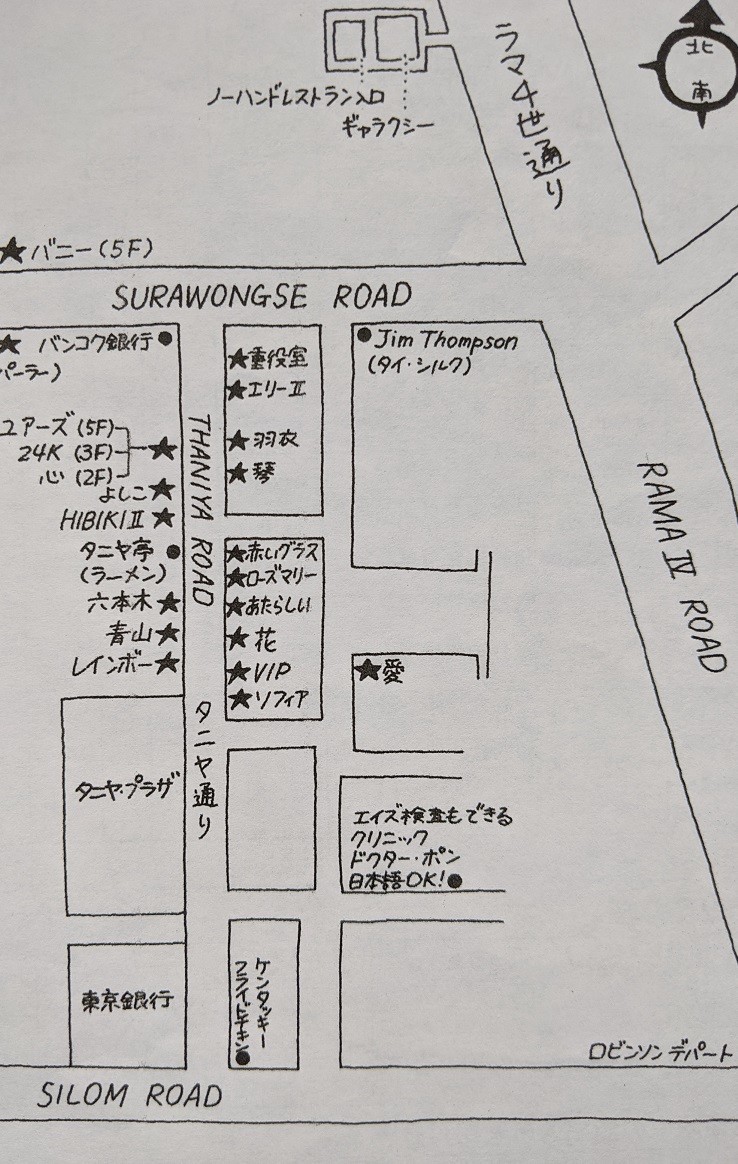 北
南
ラマ4世通り
ノーハンドレストラン入口
ギャラクシー
バニー(5F)
SURAWONGSE ROAD
バンコク銀行
パーラー)
重役室
エリーⅡ
羽衣
琴
Jim Thompson
(タイ・シルク)
ユアーズ(5F)
24K (3F)
心 (2F)
よしこ
HIBIKIⅡ
タニヤ亭
(ラーメン)
六本木
青山
レインボー
THANIYA ROAD
タニヤ通り
赤いグラス
ローズマリー
あたらしい
花
VIP
ソフィア
愛
RAMA Ⅳ ROAD
タニヤ・プラザ
エイズ検査もできる
クリニック
ドクター・ポン
日本語OK!
東京銀行
ケンタッキー
フライドチキン
ロビンソンデパート
SILOM ROAD